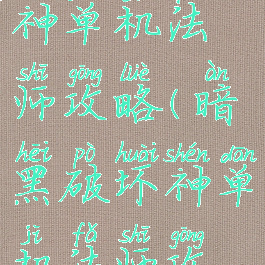 神单机法
shī gōng lüè àn
师攻略(暗
hēi pò huài shén dān
黑破坏神单
jī fǎ shī gōng
机法师攻